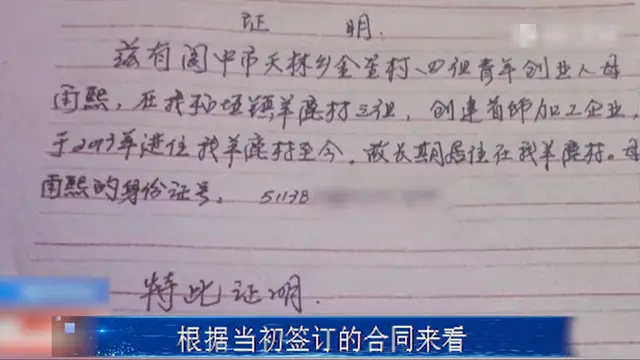 证 明.
兹有阆中市天林乡金星村、四组青年创业人母
雨熙,在我柏垭镇羊鹿村三组,创建首饰加工企业,
于2013年进住我羊鹿村至今.故长期居住在我羊鹿村。母
雨熙的身份证号:51138
特此证明.
根据当初签订的合同来看